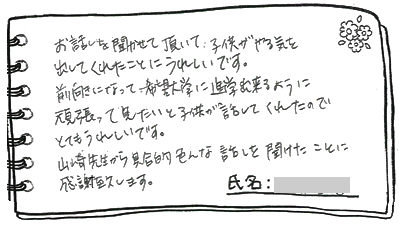 お話しを聞かせて頂いて、子供がやる気を
出してくれたことにうれしいです。
前向きになって希望大学に進学出来るように
頑張って見たいと子供が話してくれたので
とてもうれしいです。
山崎先生から具合的色んな話しを聞けたことに
感謝致します。
氏名: